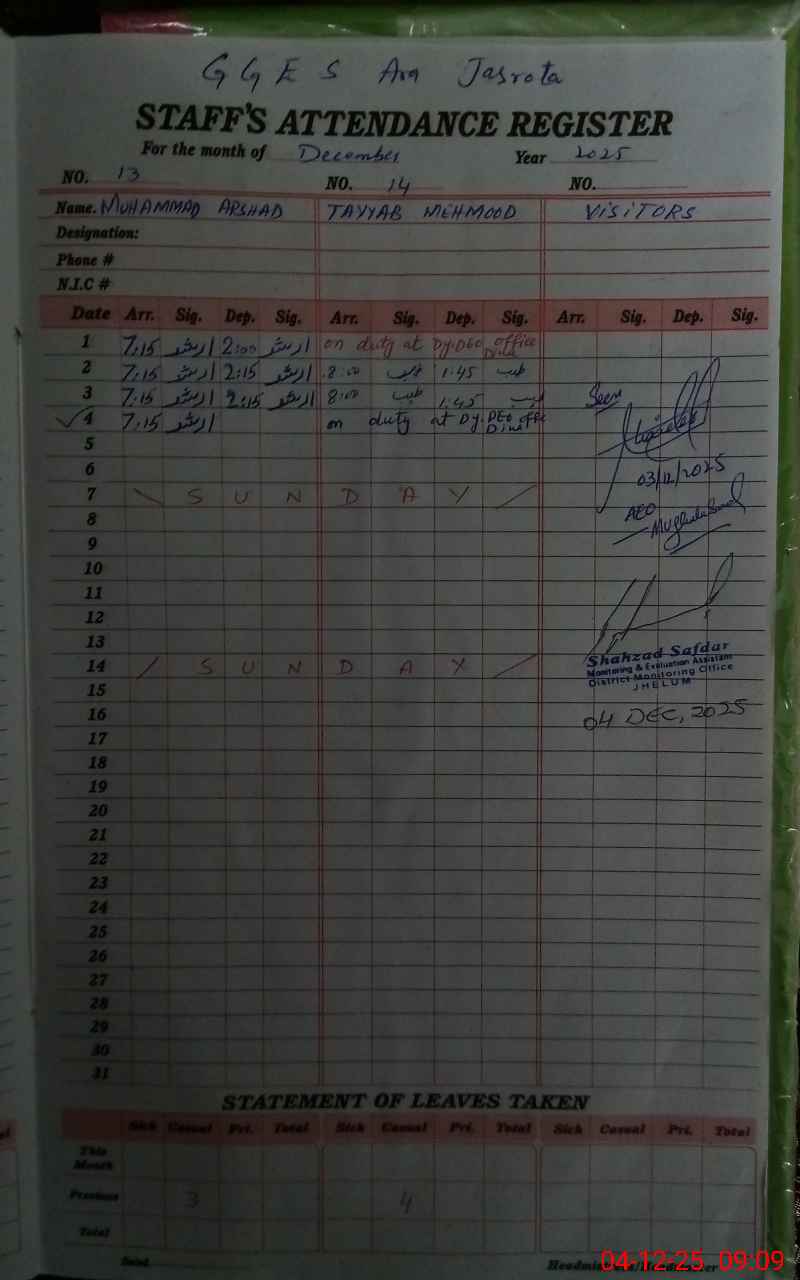 G G E S Ara Jasrota
STAFF'S ATTENDANCE REGISTER
For the month of December Year 2025
NO. 13 NO. 14 NO.
Name. MUHAMMAD ARSHAD TAYYAB MEHMOOD VISITORS
Designation:
Phone #
N.I.C #
Date Arr. Sig. Dep. Sig. Arr. Sig. Dep. Sig. Arr. Sig. Dep. Sig.
1 7:15 ارشد 2:00 ارشد on duty at Dy.DEO office
2 7:15 ارشد 2:15 ارشد 8:00 طیب 1:45 طیب
3 7:15 ارشد 2:15 ارشد 8:00 طیب 1:45 طیب Seen
4 7:15 ارشد on duty at Dy.DEO
5
6
03/12/2025
7 S U N D A Y
8 AEO
9
10
11
12
13
14 S U N D A Y
Shahzad Safdar
Monitoring & Evaluation Assistant
District Monitoring Office
JHELUM
15
16 04 DEC, 2025
17
18
19
20
21
22
23
24
25
26
27
28
29
30
31
STATEMENT OF LEAVES TAKEN
Sick Casual Pri. Total Sick Casual Pri. Total Sick Casual Pri. Total
This Month
Previous 3 4
Total
04-12-25 09:09